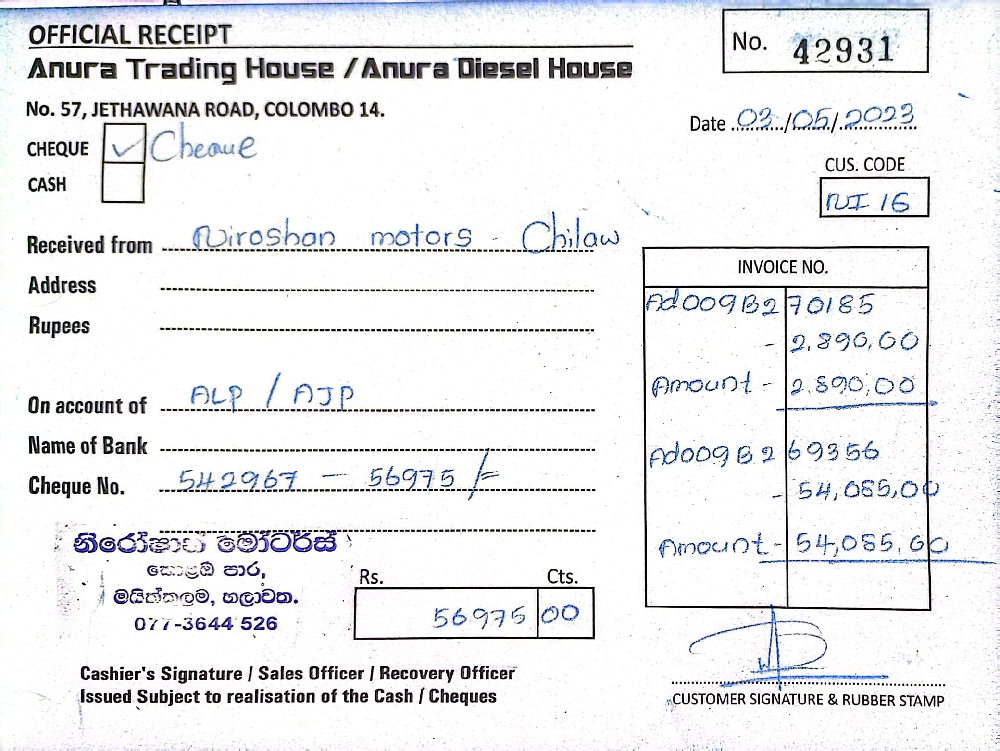 OFFICIAL RECEIPT
Anura Trading House / Anura Diesel House
No. 57, JETHAWANA ROAD, COLOMBO 14.
No. 42931
Date 03/05/2023
CHEQUE ✓ Cheaue
CASH
CUS. CODE
NI 16
Received from Niroshan motors - Chilaw
Address
Rupees
On account of ALP / AJP
Name of Bank
Cheque No. 542967 - 56975/=
INVOICE NO.
Ad009B270185
- 2,890,00
Amount - 2,890,00
Ad009B269356
- 54,085,00
Amount - 54,085,00
නිරෝෂාන් මෝටර්ස්
කොළඹ පාර,
මයික්කුලම, හලාවත.
077-3644 526
Rs. Cts.
56975 00
Cashier's Signature / Sales Officer / Recovery Officer
Issued Subject to realisation of the Cash / Cheques
CUSTOMER SIGNATURE & RUBBER STAMP